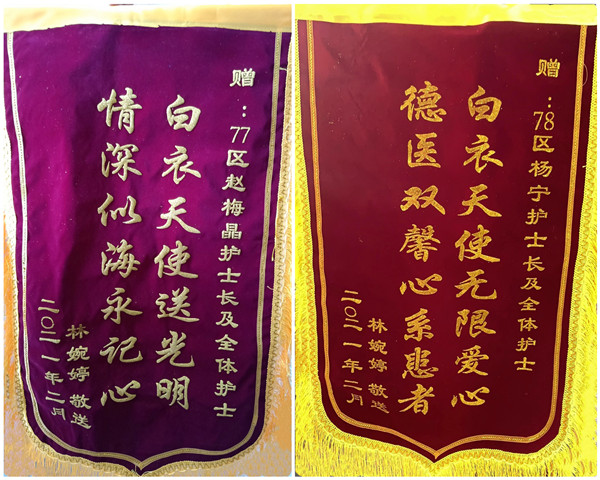 赠：77区赵梅晶护士长及全体护士
白衣天使送光明
情深似海永记心
林婉婷 敬送
二〇二一年二月
赠：78区杨宁护士长及全体护士
白衣天使无限爱心
德医双馨心系患者
林婉婷 敬送
二〇二一年二月